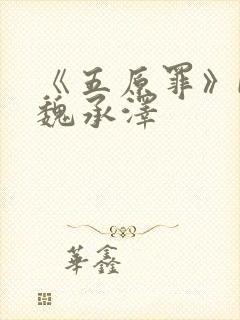 《五原罪》
魏承澤
華鑫